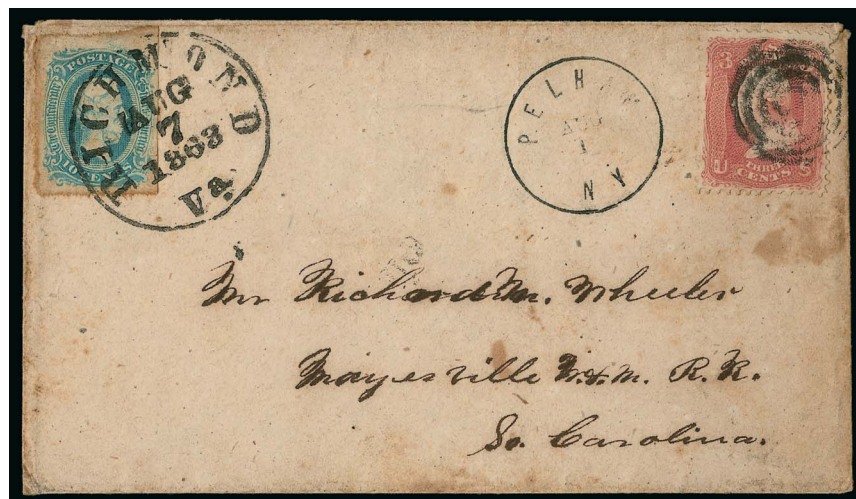 POSTAGE
10 CENTS
RICHMOND
AUG
7
1863
Va.
PELHAM
AUG
1
NY
3
U S
THREE
CENTS
Mr Richard M. Wheeler
Mayesville W. & M. R. R.
So. Carolina.